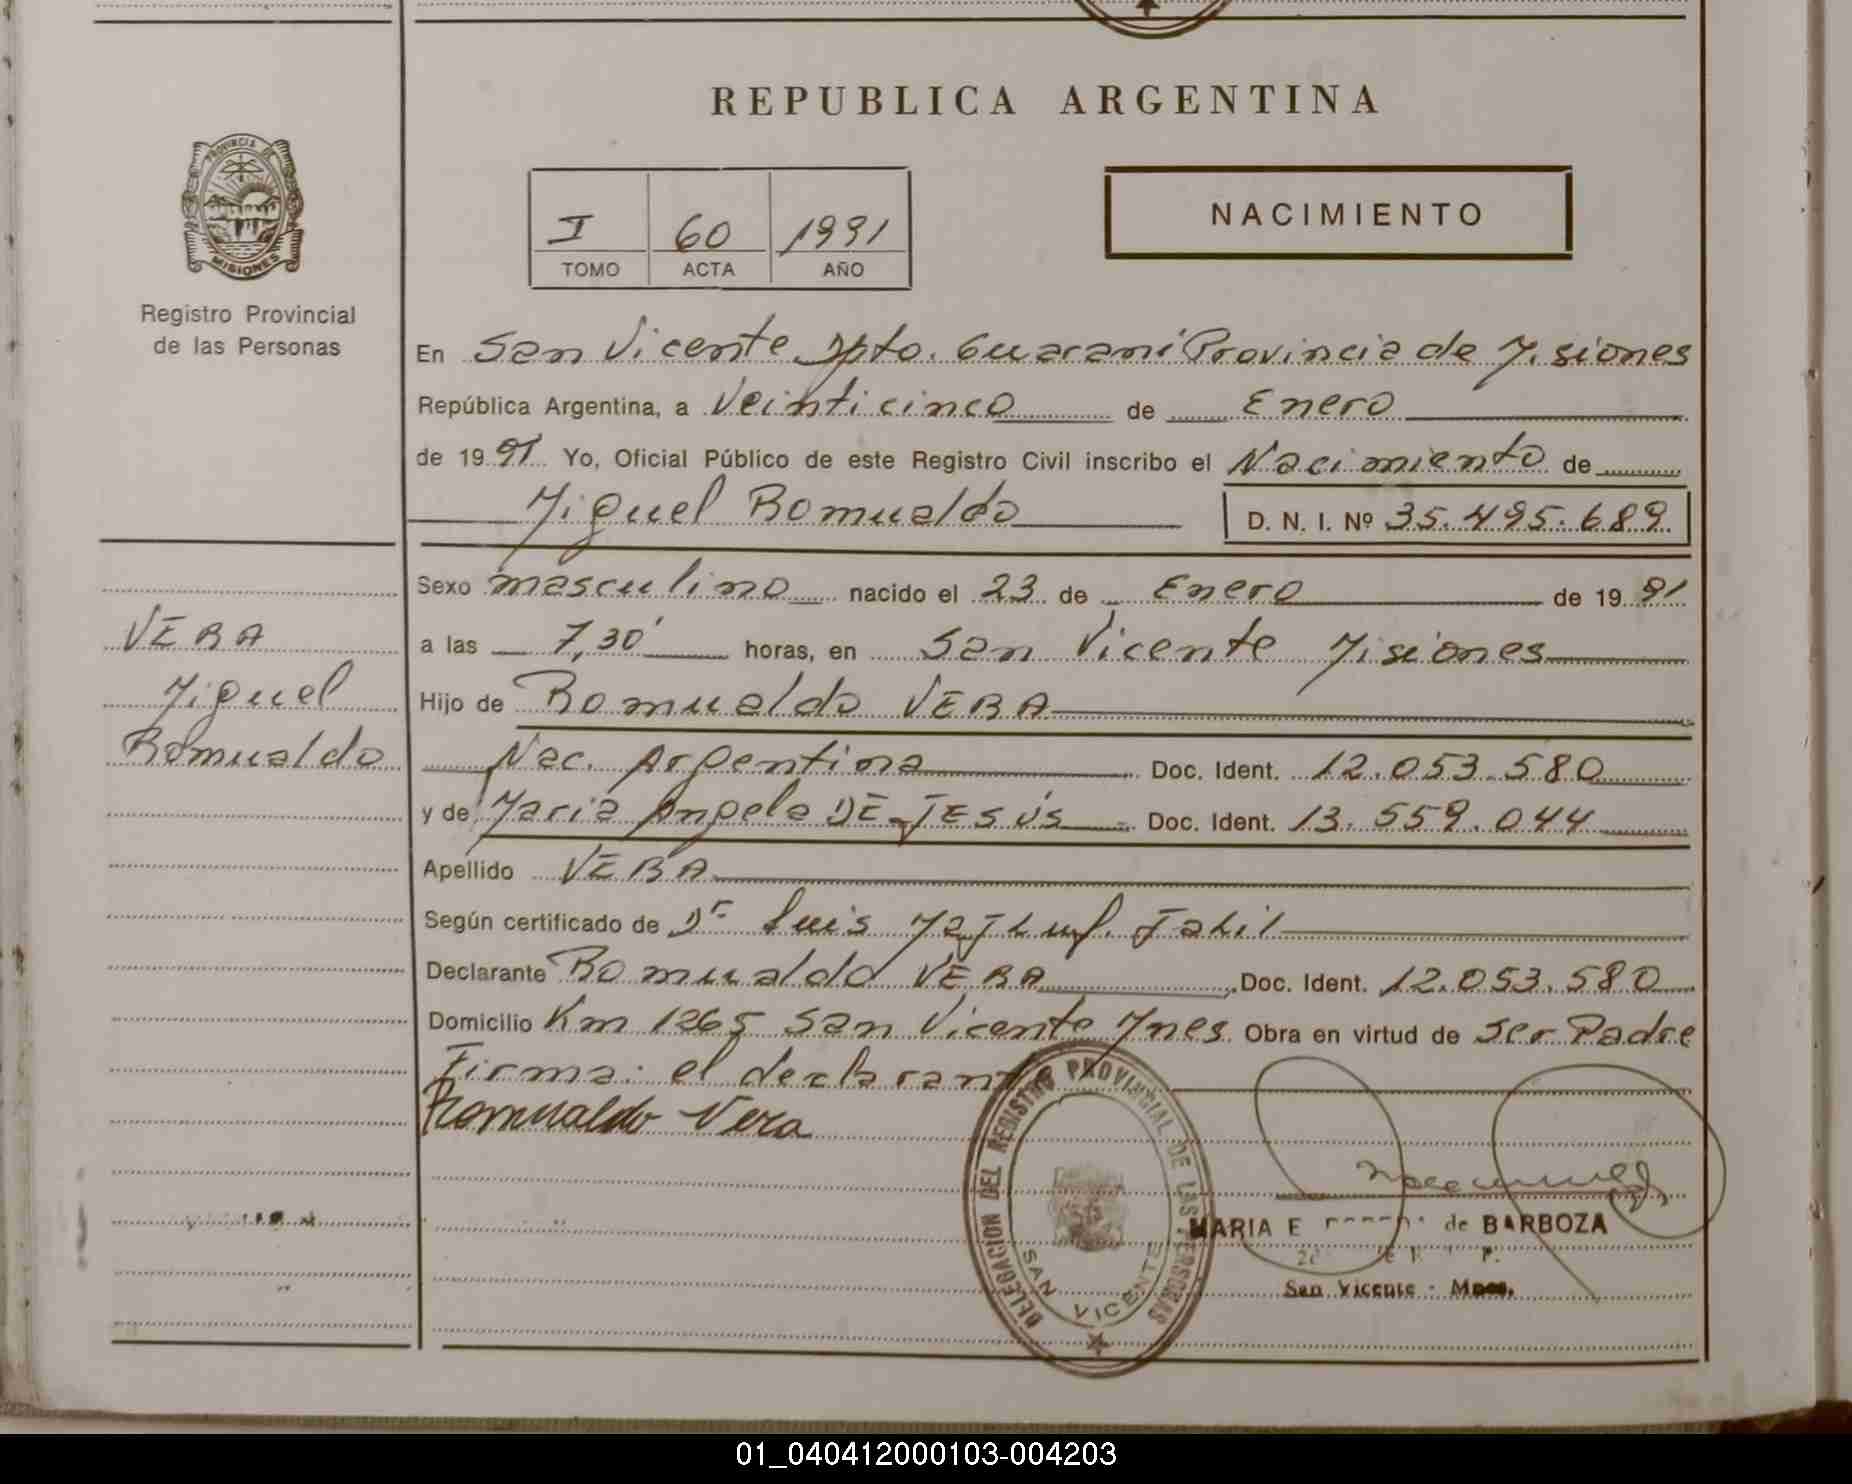 REPUBLICA ARGENTINA
PROVINCIA DE MISIONES
Registro Provincial
de las Personas
I 60 1991
TOMO ACTA AÑO
NACIMIENTO
En San Vicente Dpto. Guaraní Provincia de Misiones
República Argentina, a Veinticinco de Enero
de 19 91 Yo, Oficial Público de este Registro Civil inscribo el Nacimiento de
Miguel Romualdo D. N. I. Nº 35.495.689
Sexo masculino nacido el 23 de Enero de 19 91
a las 7,30' horas, en San Vicente Misiones
Hijo de Romualdo VERA
Nac. Argentina Doc. Ident. 12.053.580
y de María Angela DE JESÚS Doc. Ident. 13.559.044
Apellido VERA
Según certificado de Dr Luis
Declarante Romualdo VERA Doc. Ident. 12.053.580
Domicilio Km 1265 San Vicente Mnes. Obra en virtud de Ser Padre
Firma: el declarante
Romualdo Vera
VERA
Miguel
Romualdo
DELEGACION DEL REGISTRO PROVINCIAL DE LAS PERSONAS
SAN VICENTE
MARIA E de BARBOZA
San Vicente - Mnes.
01_040412000103-004203